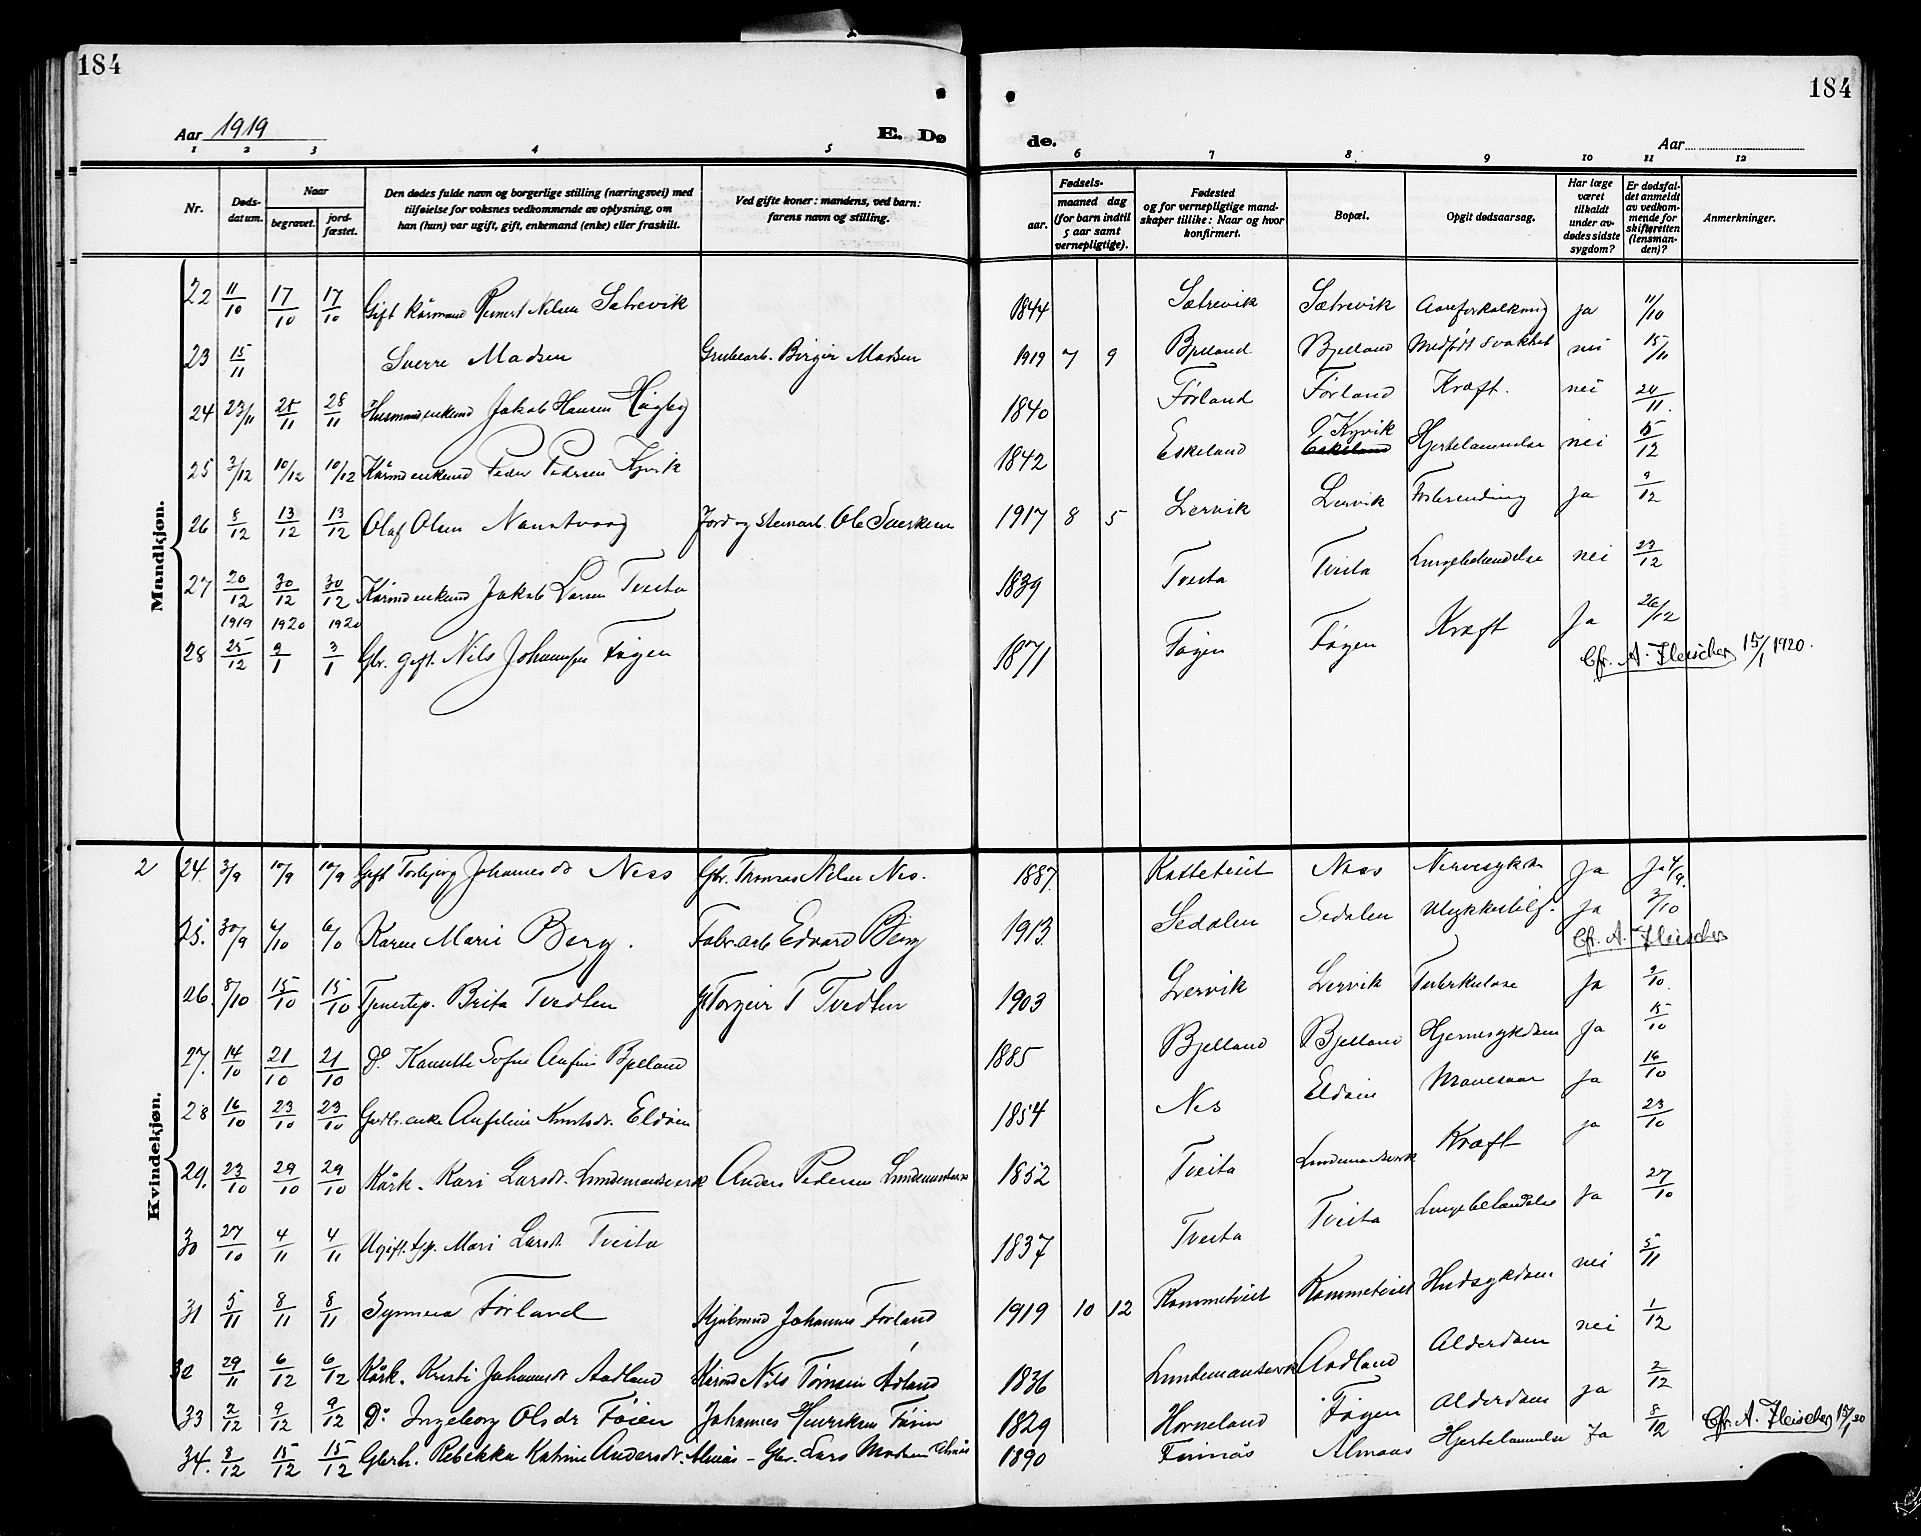 184
184
Aar 1919
E. Dø
de.
Aar
1 2 3 4 5 6 7 8 9 10 11 12
Nr.
Døds-datum.
Naar
begravet.
jord-fæstet.
Den dødes fulde navn og borgerlige stilling (næringsvei) med
tilføielse for voksnes vedkommende av oplysning, om
han (hun) var ugift, gift, enkemand (enke) eller fraskilt.
Ved gifte koner: mandens, ved barn:
farens navn og stilling.
Fødsels-
aar.
maaned dag
(for barn indtil
5 aar samt
vernepligtige).
Fødested
og for vernepligtige mand-
skaper tillike: Naar og hvor
konfirmert.
Bopæl.
Opgit dødsaarsag.
Har læge
været
tilkaldt
under av-
dødes sidste
sygdom?
Er dødsfal-
det anmeldt
av vedkom-
mende for
skifteretten
(lensman-
den)?
Anmerkninger.
Mandkjøn.
22 11/10 17/10 17/10 Gift kårmand Reinert Nilsen Sætrevik 1844 Sætrevik Sætrevik Aareforkalkning ja 11/10
23 15/11 Sverre Madsen Grubearb. Birger Madsen 1919 7 9 Bjelland Bjelland Medfødt svakhet nei 15/11
24 23/11 28/11 28/11 Husmand enkemd Jakob Hansen Høgby 1840 Førland Førland Kræft. nei 24/11.
25 3/12 10/12 10/12 Kårmd enkemd Peder Pedersen Kyvik 1842 Eskeland Kyvik Eskeland Hjertelammelse nei 15/12
26 8/12 13/12 13/12 Olaf Olsen Nonstvaag Jord og stenarb. Ole 1917 8 5 Lervik Lervik Forbrending ja 9/12
27 20/12 30/12 30/12 Kårmd enkemd Jakob Larsen Tveita 1839 Tveita Tveita Lungebetendelse nei 23/12
1919 1920 1920
28 25/12 2/1 3/1 Gbr. gift. Nils Johannesen Føyen 1871 Føyen Føyen Kræft Ja 26/12
Cfr. A. Fleischer 15/1 1920.
Kvindekjøn.
2 24. 3/9 10/9 10/9 Gift Torbjørg Johannesdr Ness Gbr. Thomas Nilsen Nes. 1887 Katteteit Naas Nervesykd. Ja Ja 4/9.
25. 30/9 6/10 6/10 Karen Marie Berg. Fabr. arb Edvard Berg 1913 Sedalen Sedalen Ulykkestilf. Ja 2/10
Cfr. A. Fleischer
26. 8/10 15/10 15/10 Tjenestep. Brita Tvedten Torgeir T Tvedten 1903 Lervik Lervik Tuberkulose Ja 9/10.
27. 14/10 21/10 21/10 Do. Kanutte Sofie Anfine Bjelland 1885 Bjelland Bjelland Hjernesykdom Ja 15/10
28 16/10 23/10 23/10 Gardbr. enke Anfeline Knutsdr. Eldøien 1854 Nes Eldøien Mavesaar Ja 16/10
29. 23/10 29/10 29/10 Kårk. Kari Larsdr. Lundemansverk Anders Pedersen Lundemansverk 1852 Tveita Lundemansverk Kræft ja 23/10
30 27/10 4/11 4/11 Ugift. tjp. Mari Larsdr. Tveita 1837 Tveita Tveita Lungebetændelse Ja 27/10
31 5/11 8/11 8/11 Synneva Førland Johannes Førland 1919 10 12 Rommetveit Rommetveit Hudsykdom nei 5/11
32 29/11 6/12 6/12 Kårk. Kristi Johannesdr Aadland Kårmd Nils Tørresen Ådland 1836 Lundemansverk Aadland Alderdom nei 1/12
33 2/12 9/12 9/12 Do. Ingeborg Olsdr Føien Johannes Henriksen Føien 1829 Horneland Føyen Alderdom ja 2/12
Cfr. A. Fleischer 15/1 20
34. 8/12 15/12 15/12 Gbrh. Rebekka Katrine Andersdr. Almås - Gbr. Lars Mortensen Almås 1890 Finnås Almaas Hjertelammelse Ja 8/12